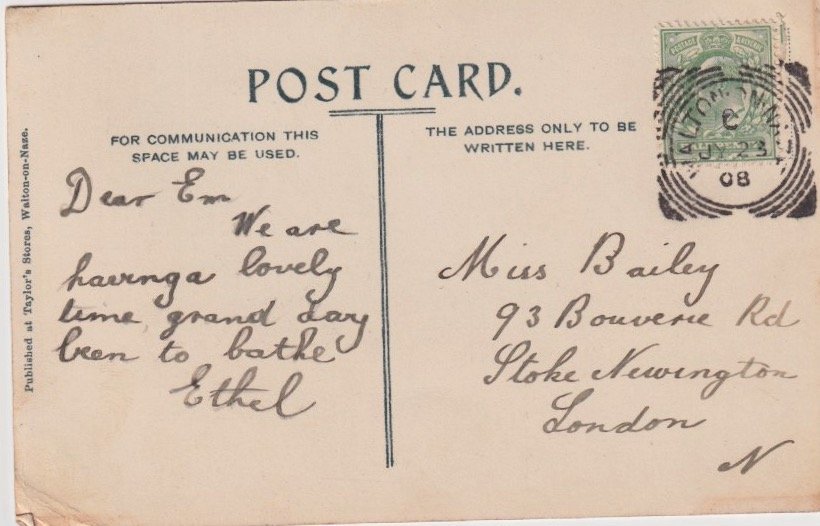 POST CARD.
FOR COMMUNICATION THIS
SPACE MAY BE USED.
THE ADDRESS ONLY TO BE
WRITTEN HERE.
Published at Taylor's Stores, Walton-on-Naze.
Dear Em
We are
having a lovely
time grand day
been to bathe
Ethel
Miss Bailey
93 Bouverie Rd
Stoke Newington
London
N
POSTAGE
WALTON-ON-NAZE
C
JY 23
08